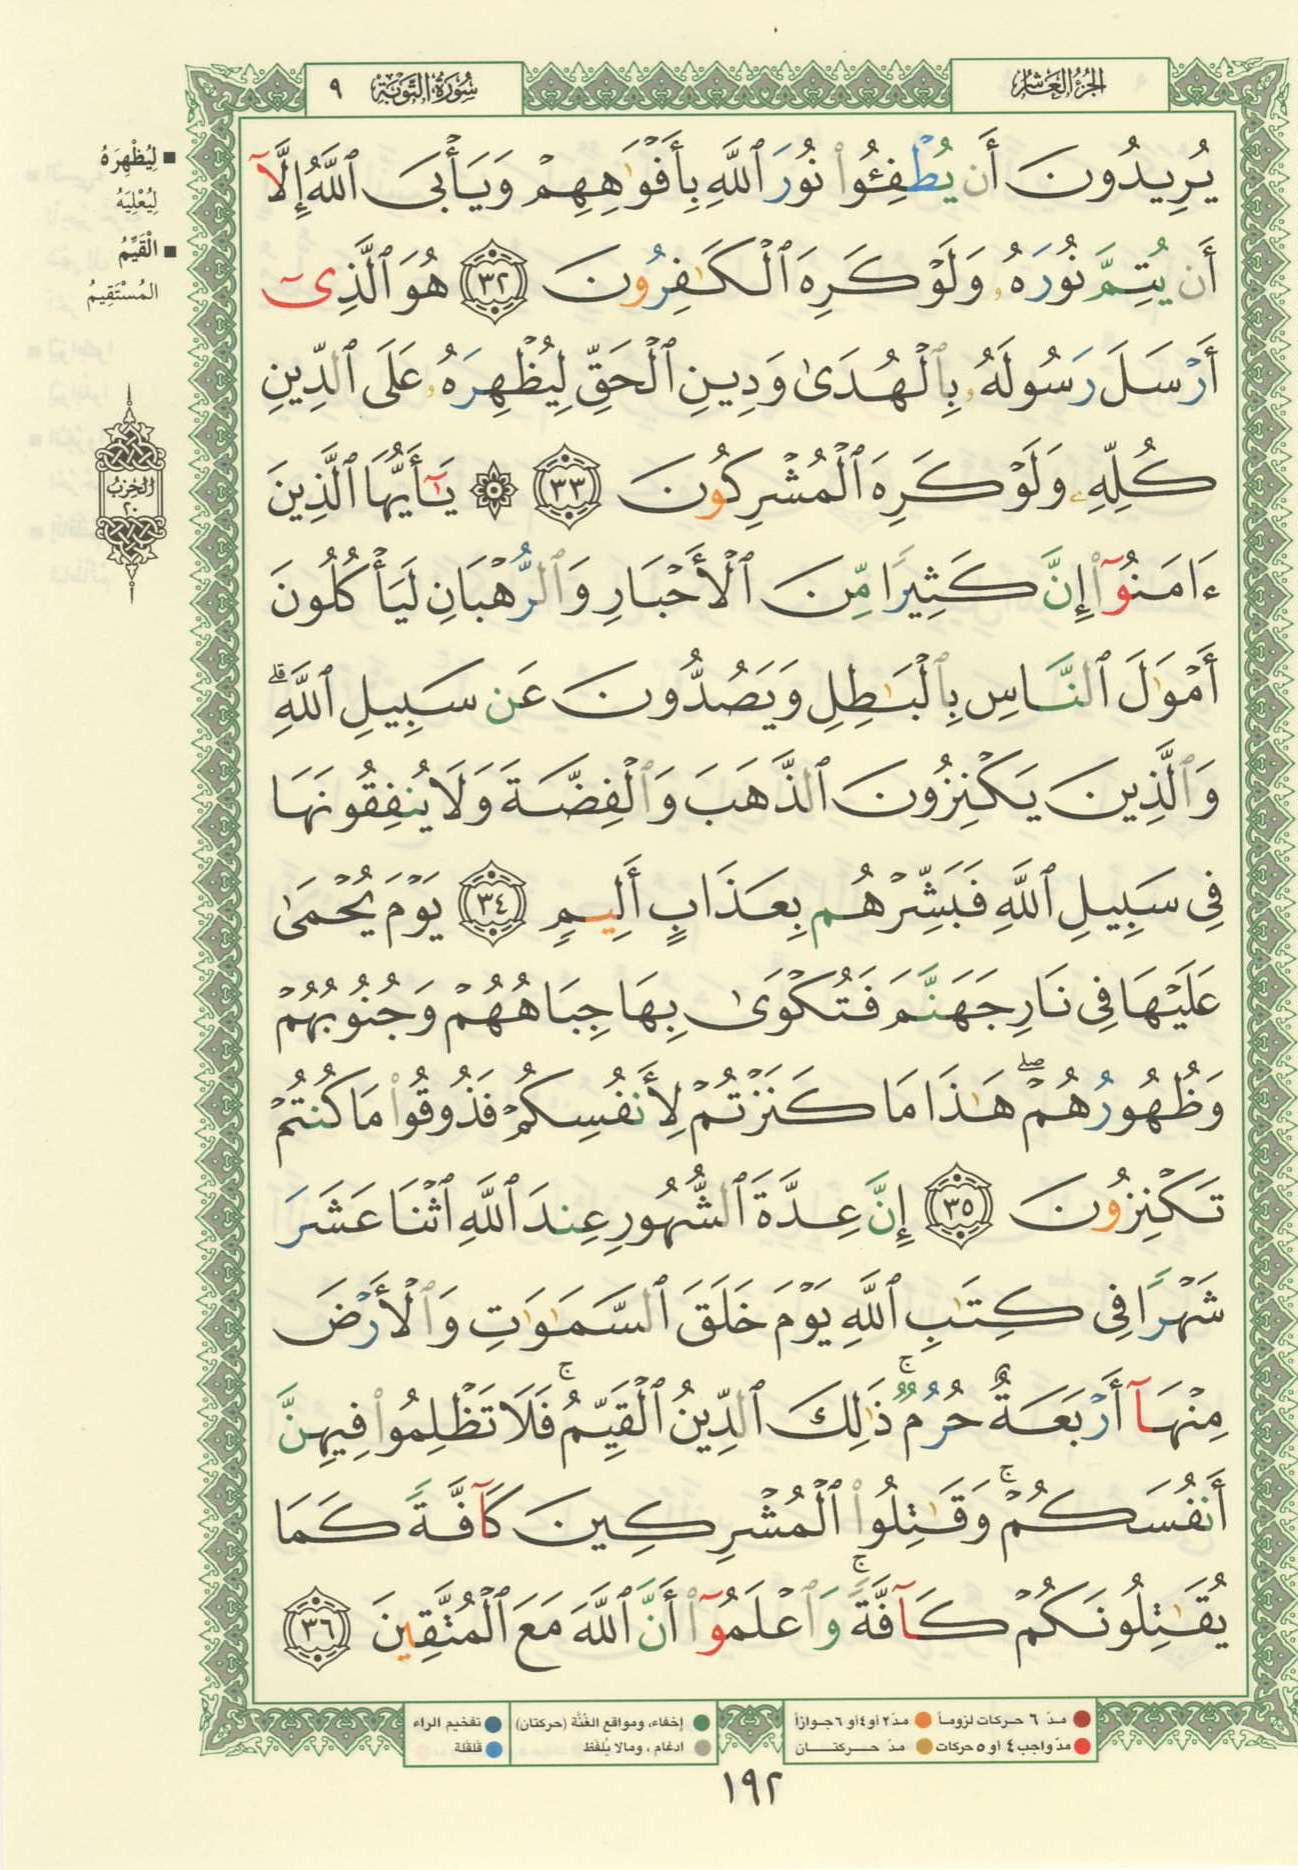 الجزء العاشر
سورة التوبة ٩
يُرِيدُونَ أَن يُطْفِـُٔوا۟ نُورَ ٱللَّهِ بِأَفْوَٰهِهِمْ وَيَأْبَى ٱللَّهُ إِلَّآ
أَن يُتِمَّ نُورَهُۥ وَلَوْ كَرِهَ ٱلْكَٰفِرُونَ ٣٢ هُوَ ٱلَّذِىٓ
أَرْسَلَ رَسُولَهُۥ بِٱلْهُدَىٰ وَدِينِ ٱلْحَقِّ لِيُظْهِرَهُۥ عَلَى ٱلدِّينِ
كُلِّهِۦ وَلَوْ كَرِهَ ٱلْمُشْرِكُونَ ٣٣ ۞ يَٰٓأَيُّهَا ٱلَّذِينَ
ءَامَنُوٓا۟ إِنَّ كَثِيرًا مِّنَ ٱلْأَحْبَارِ وَٱلرُّهْبَانِ لَيَأْكُلُونَ
أَمْوَٰلَ ٱلنَّاسِ بِٱلْبَٰطِلِ وَيَصُدُّونَ عَن سَبِيلِ ٱللَّهِ ۗ
وَٱلَّذِينَ يَكْنِزُونَ ٱلذَّهَبَ وَٱلْفِضَّةَ وَلَا يُنفِقُونَهَا
فِى سَبِيلِ ٱللَّهِ فَبَشِّرْهُم بِعَذَابٍ أَلِيمٍ ٣٤ يَوْمَ يُحْمَىٰ
عَلَيْهَا فِى نَارِ جَهَنَّمَ فَتُكْوَىٰ بِهَا جِبَاهُهُمْ وَجُنُوبُهُمْ
وَظُهُورُهُمْ ۖ هَٰذَا مَا كَنَزْتُمْ لِأَنفُسِكُمْ فَذُوقُوا۟ مَا كُنتُمْ
تَكْنِزُونَ ٣٥ إِنَّ عِدَّةَ ٱلشُّهُورِ عِندَ ٱللَّهِ ٱثْنَا عَشَرَ
شَهْرًا فِى كِتَٰبِ ٱللَّهِ يَوْمَ خَلَقَ ٱلسَّمَٰوَٰتِ وَٱلْأَرْضَ
مِنْهَآ أَرْبَعَةٌ حُرُمٌ ۚ ذَٰلِكَ ٱلدِّينُ ٱلْقَيِّمُ ۚ فَلَا تَظْلِمُوا۟ فِيهِنَّ
أَنفُسَكُمْ ۚ وَقَٰتِلُوا۟ ٱلْمُشْرِكِينَ كَآفَّةً كَمَا
يُقَٰتِلُونَكُمْ كَآفَّةً ۚ وَٱعْلَمُوٓا۟ أَنَّ ٱللَّهَ مَعَ ٱلْمُتَّقِينَ ٣٦
■ لِيُظْهِرَهُ
لِيُعْلِيَهُ
■ الْقَيِّمُ
المُسْتَقِيمُ
الحزب
٢٠
● مدّ ٦ حركات لزوماً ● مدّ ٢ أو ٤ أو ٦ جوازاً
● مدّ واجب ٤ أو ٥ حركات ● مدّ حركتان
● إخفاء، ومواقع الغُنَّة (حركتان) ● تفخيم الراء
● ادغام، ومالا يُلفَظ ● قلقلة
١٩٢